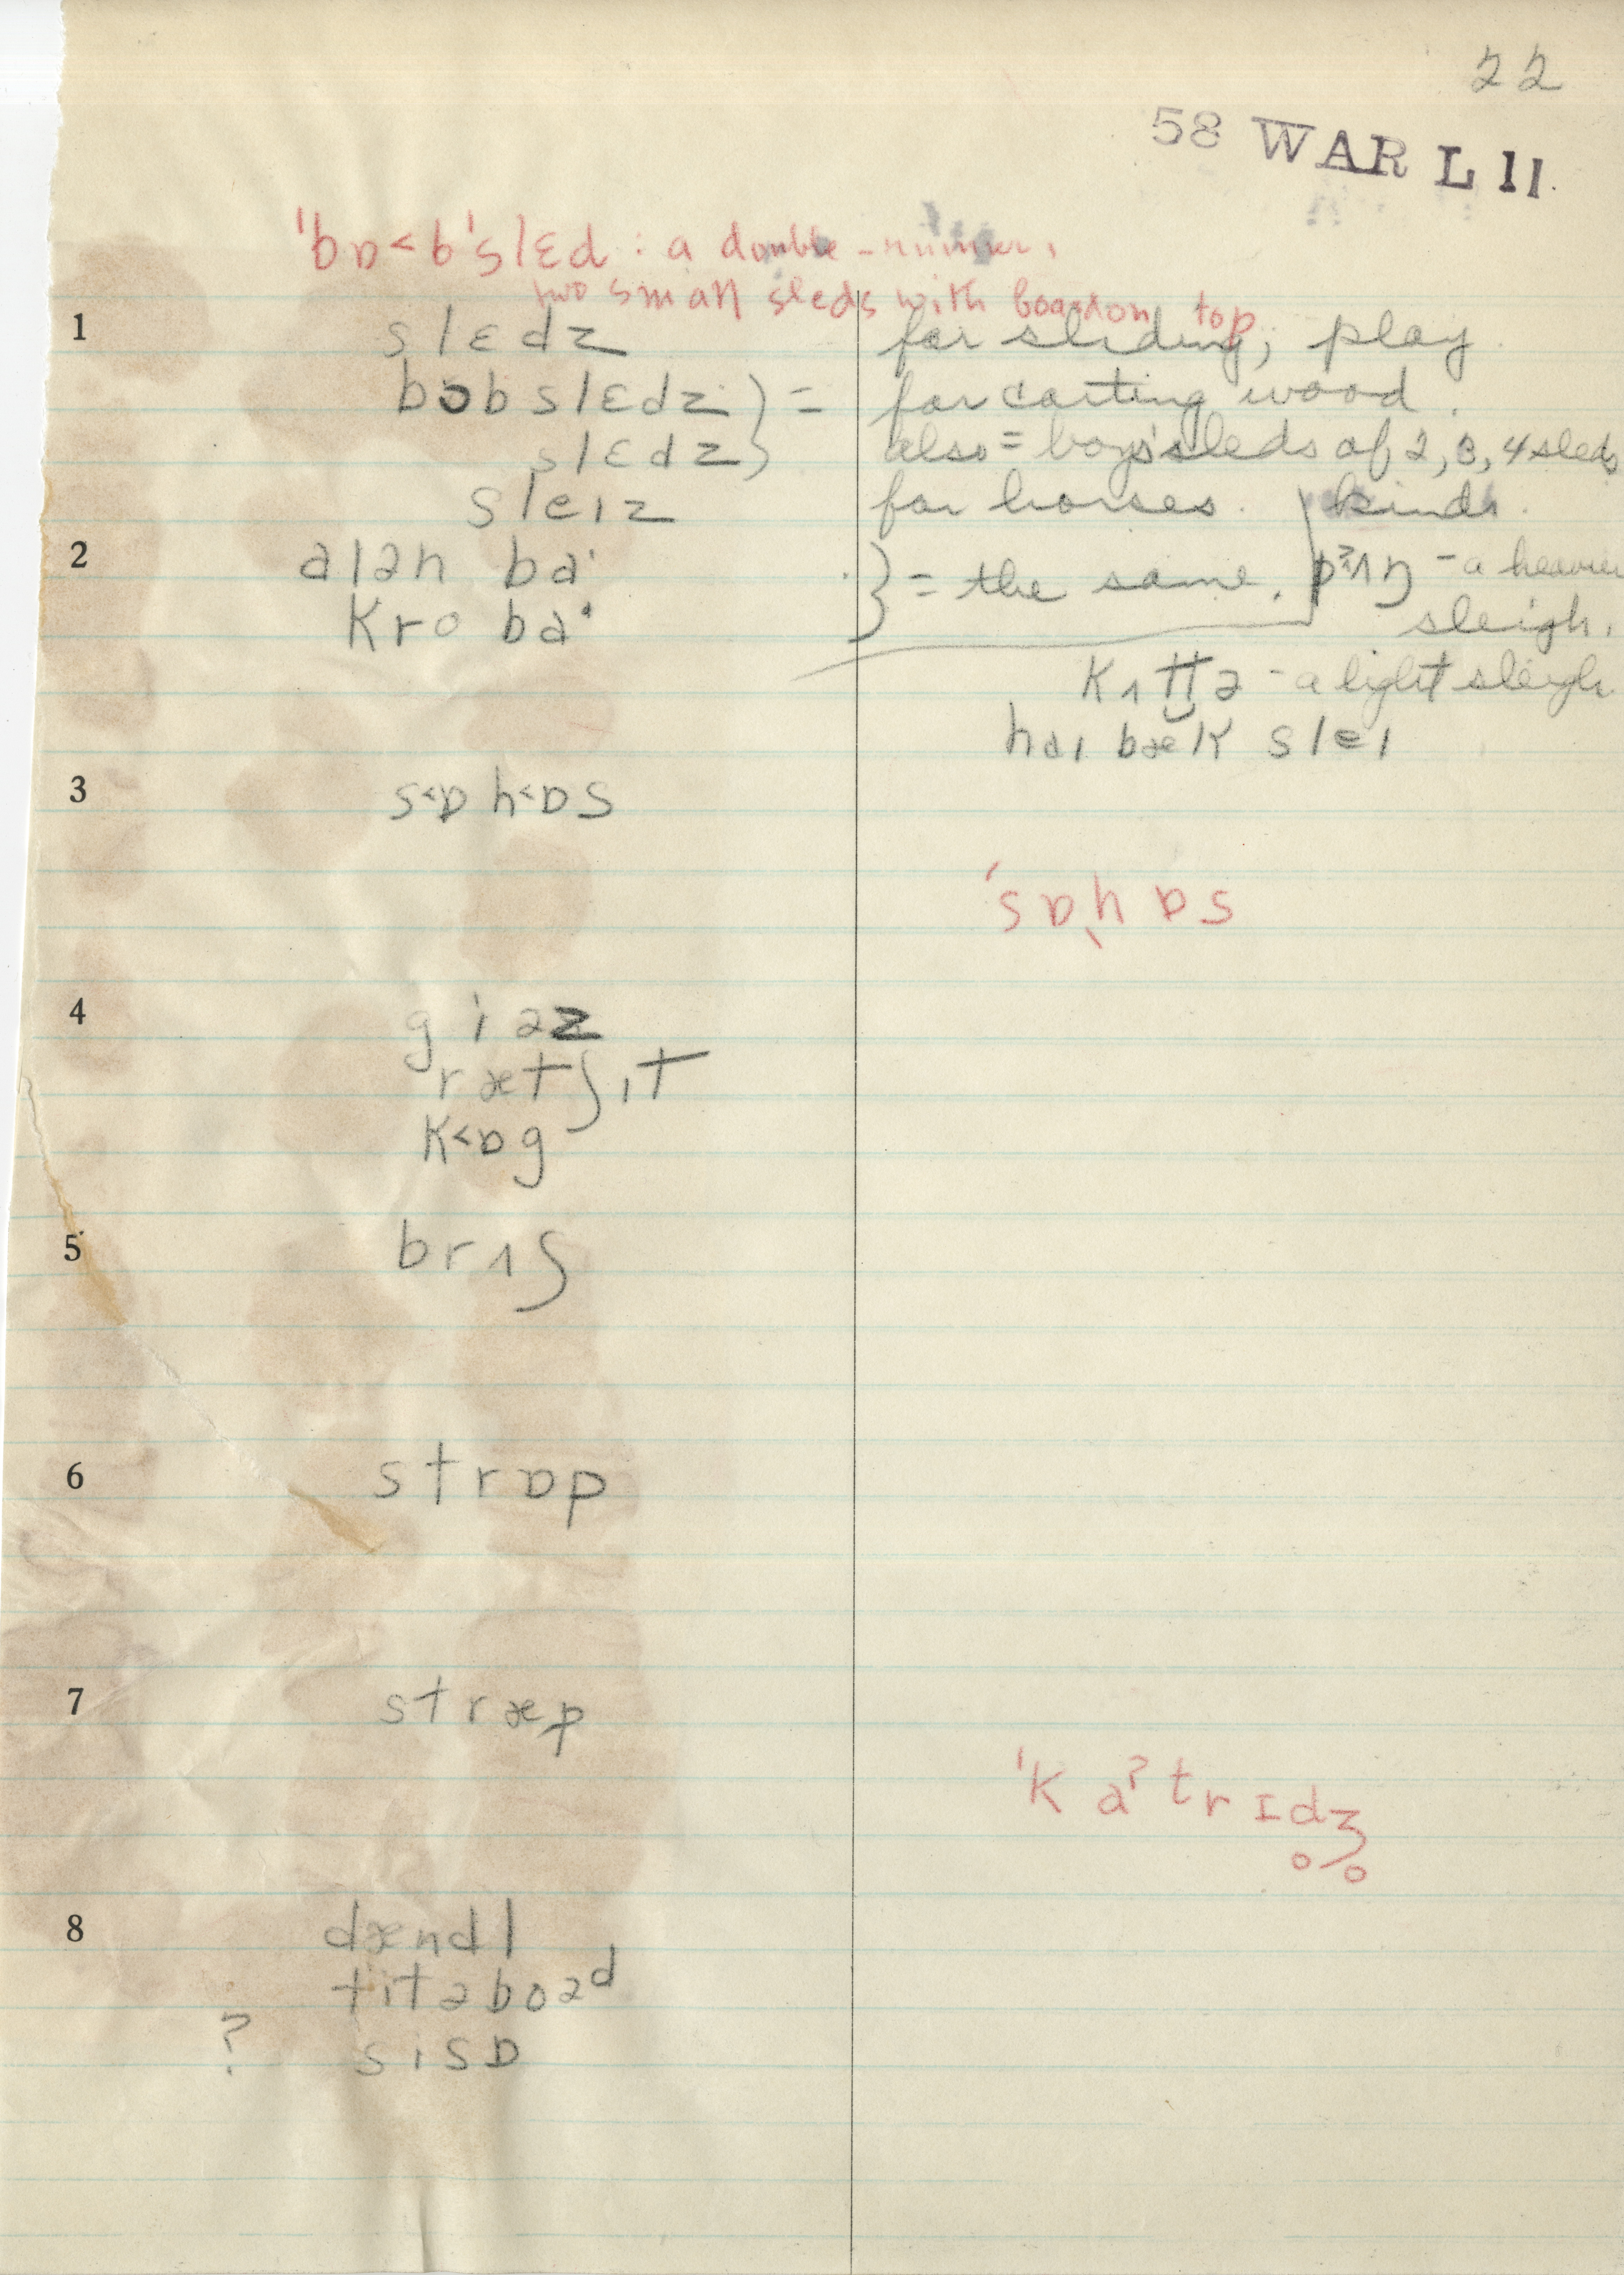 22
58 WAR L 11.
'bɒ<b'slɛd : a double-runner,
two small sleds with board on top.
1 slɛdz for sliding, play.
bɔbslɛdz } = for carting wood.
slɛdz } also = boys' sleds of 2, 3, 4 sleds
sleɪz for horses. kinds.
2 aɪən ba˙ } = the same. - a heavier
kro ba˙ sleigh.
- a light sleigh
haɪ bæk sleɪ
3 s<ɒ h<ɒs
'sɒˌhɒs
4 gɪəz
rætʃɪt
k<ɒg
5 brɪʃ
6 strɒp
7 stræp
'ka?trɪdʒ
8 dændl
tɪtəboəd
? sisɒ